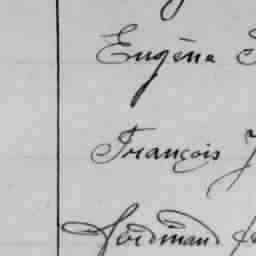 Eugéna
François J
Ferdinand